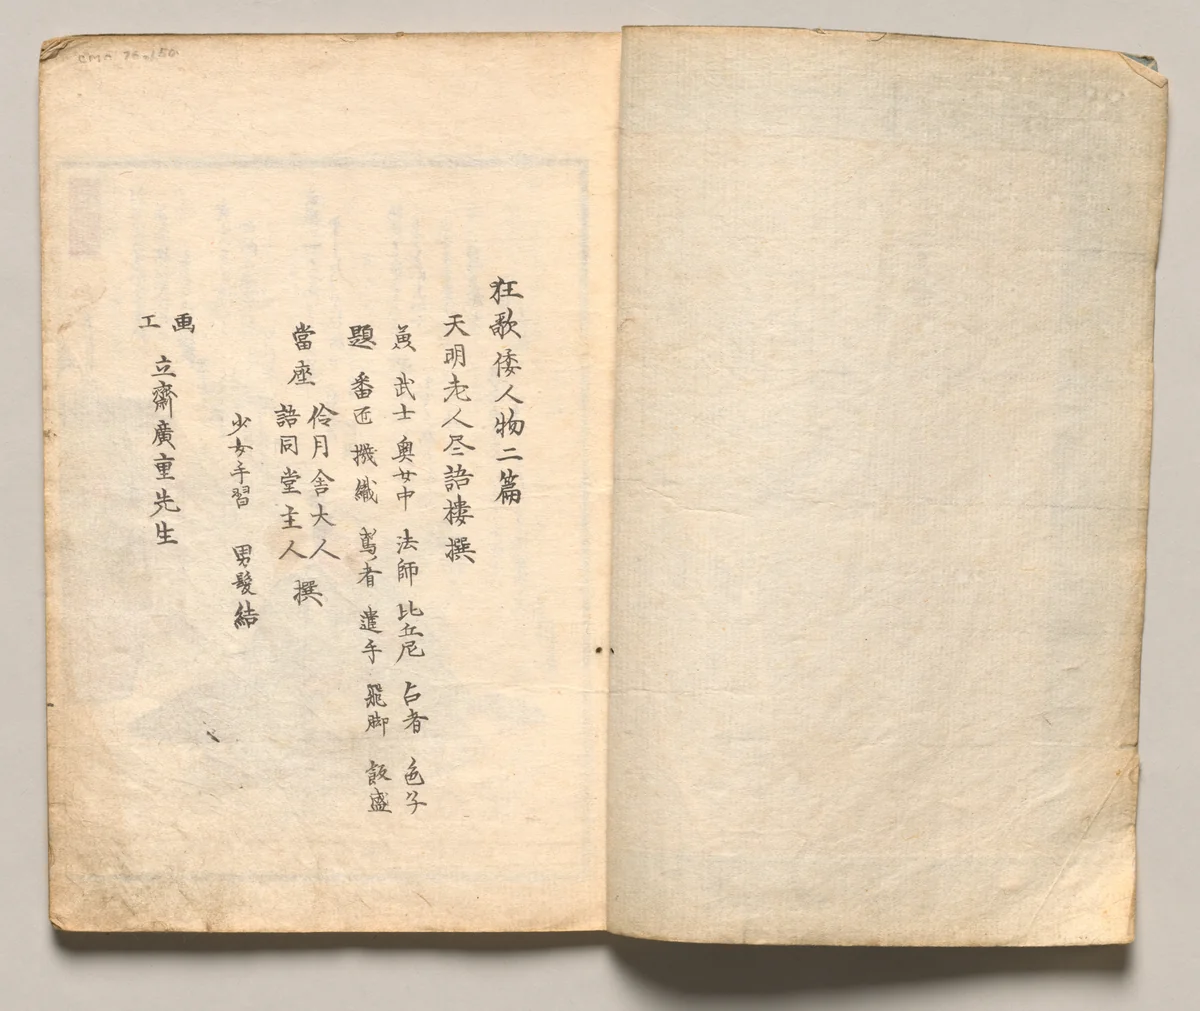 狂歌倭人物二篇
天明老人尽語樓撰
兼 武士 奥女中 法師 比丘尼 占者 色子
題 番匠 機織 鳶者 遣手 飛脚 飯盛
當座 伶月舎大人
語同堂主人 撰
少女手習 男髪結
画工 立齋廣重先生